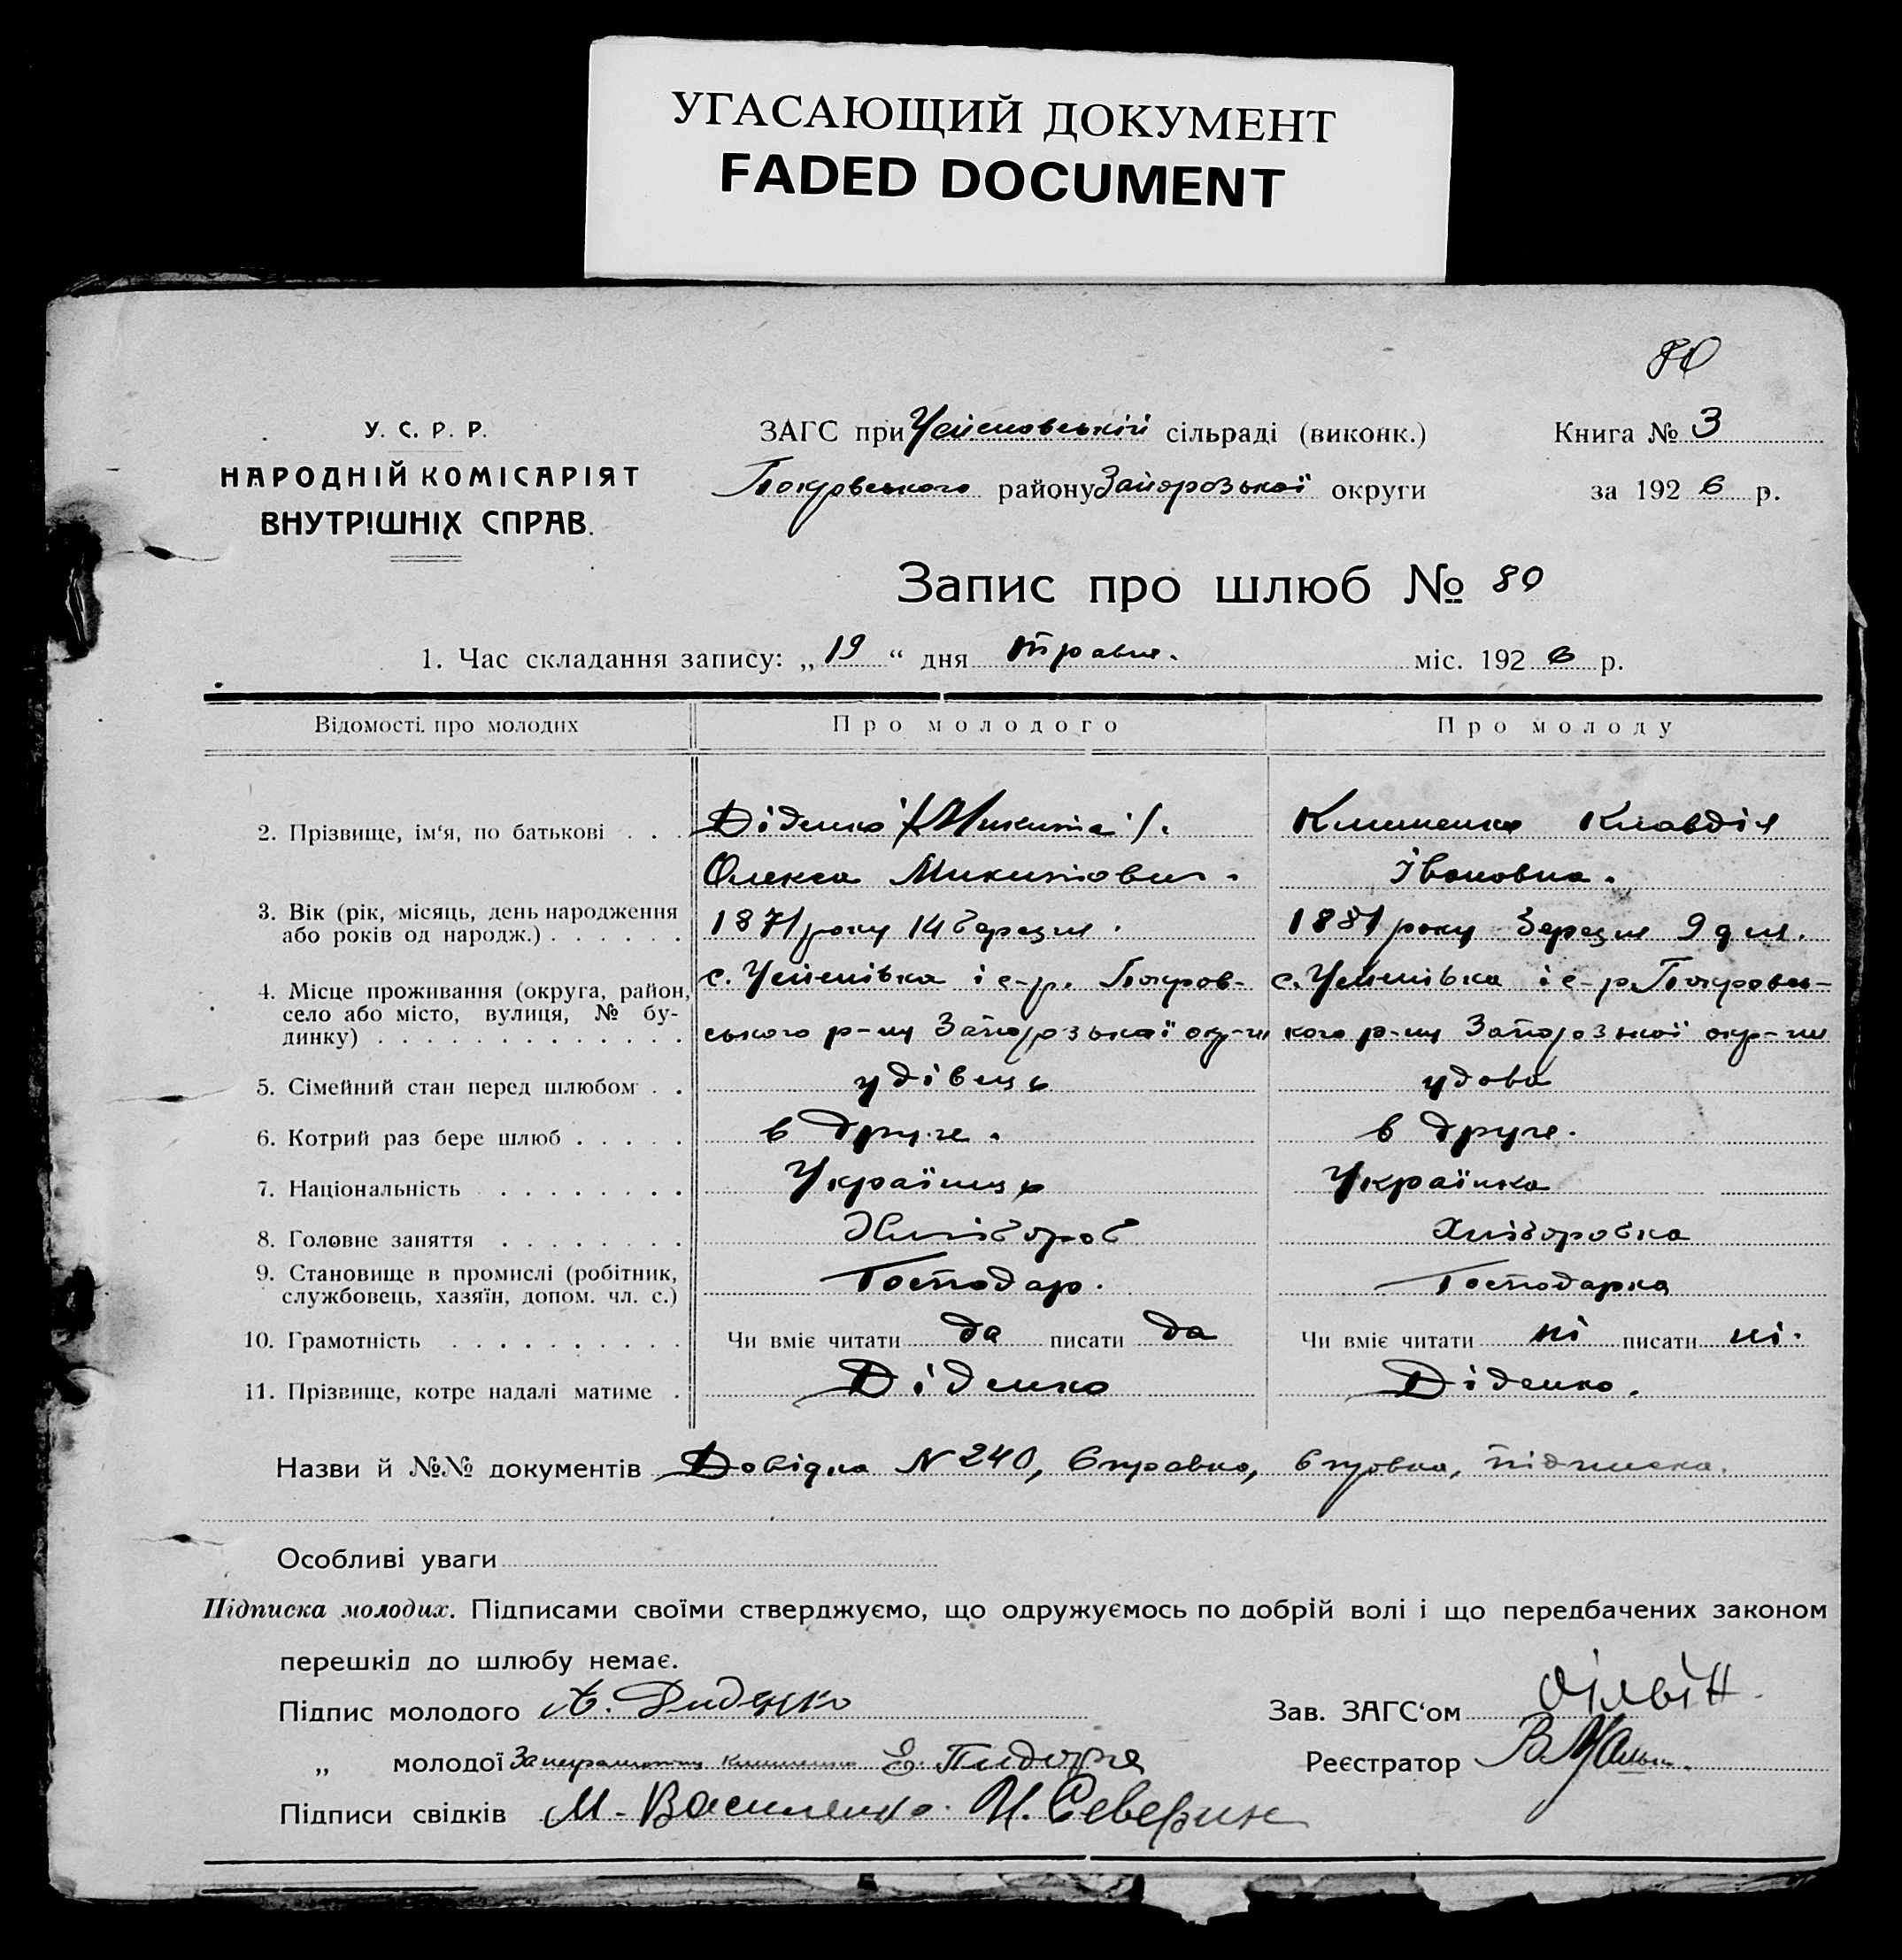 УГАСАЮЩИЙ ДОКУМЕНТ
FADED DOCUMENT
80
У. С. Р. Р.
НАРОДНІЙ КОМІСАРІЯТ
ВНУТРІШНІХ СПРАВ.
ЗАГС при Успеновській сільраді (виконк.)
Покровського району Запорозької округи
Книга № 3
за 192 6 р.
Запис про шлюб № 80
1. Час складання запису: „ 19 “ дня травня. міс. 192 6 р.
Відомості про молодих Про молодого Про молоду
2. Прізвище, ім‘я, по батькові . . . Діденко /Микита/. Клименко Клавдія
Олекса Микитович. Івановна.
3. Вік (рік, місяць, день народження
або років од народж.) . . . . . . 1871 року 14 березня. 1881 року березня 9 дня.
4. Місце проживання (округа, район,
село або місто, вулиця, № бу-
динку) . . . . . . . . . . . . .
с. Успенівка і с-р. Покров- с. Успенівка і с-р. Покровсь-
ського р-ну Запорозької окр-ги кого р-ну Запорозької окр-ги
5. Сімейний стан перед шлюбом . . удівець удова
6. Котрий раз бере шлюб . . . . . в друге. в друге.
7. Національність . . . . . . . . Українець Українка
8. Головне заняття . . . . . . . . Хлібороб Хліборобка
9. Становище в промислі (робітник,
службовець, хазяїн, допом. чл. с.) Господар. Господарка
10. Грамотність . . . . . . . . . . Чи вміє читати да писати да Чи вміє читати ні писати ні.
11. Прізвище, котре надалі матиме . Діденко Діденко.
Назви й №№ документів Довідка N 240, Справка, підписка.
Особливі уваги
Підписка молодих. Підписами своїми стверджуємо, що одружуємось по добрій волі і що передбачених законом
перешкід до шлюбу немає.
Підпис молодого А. Диденко Зав. ЗАГС‘ом
„ молодої За неграмотну Клименко Реєстратор
Підписи свідків М. Василенко. И. Северин